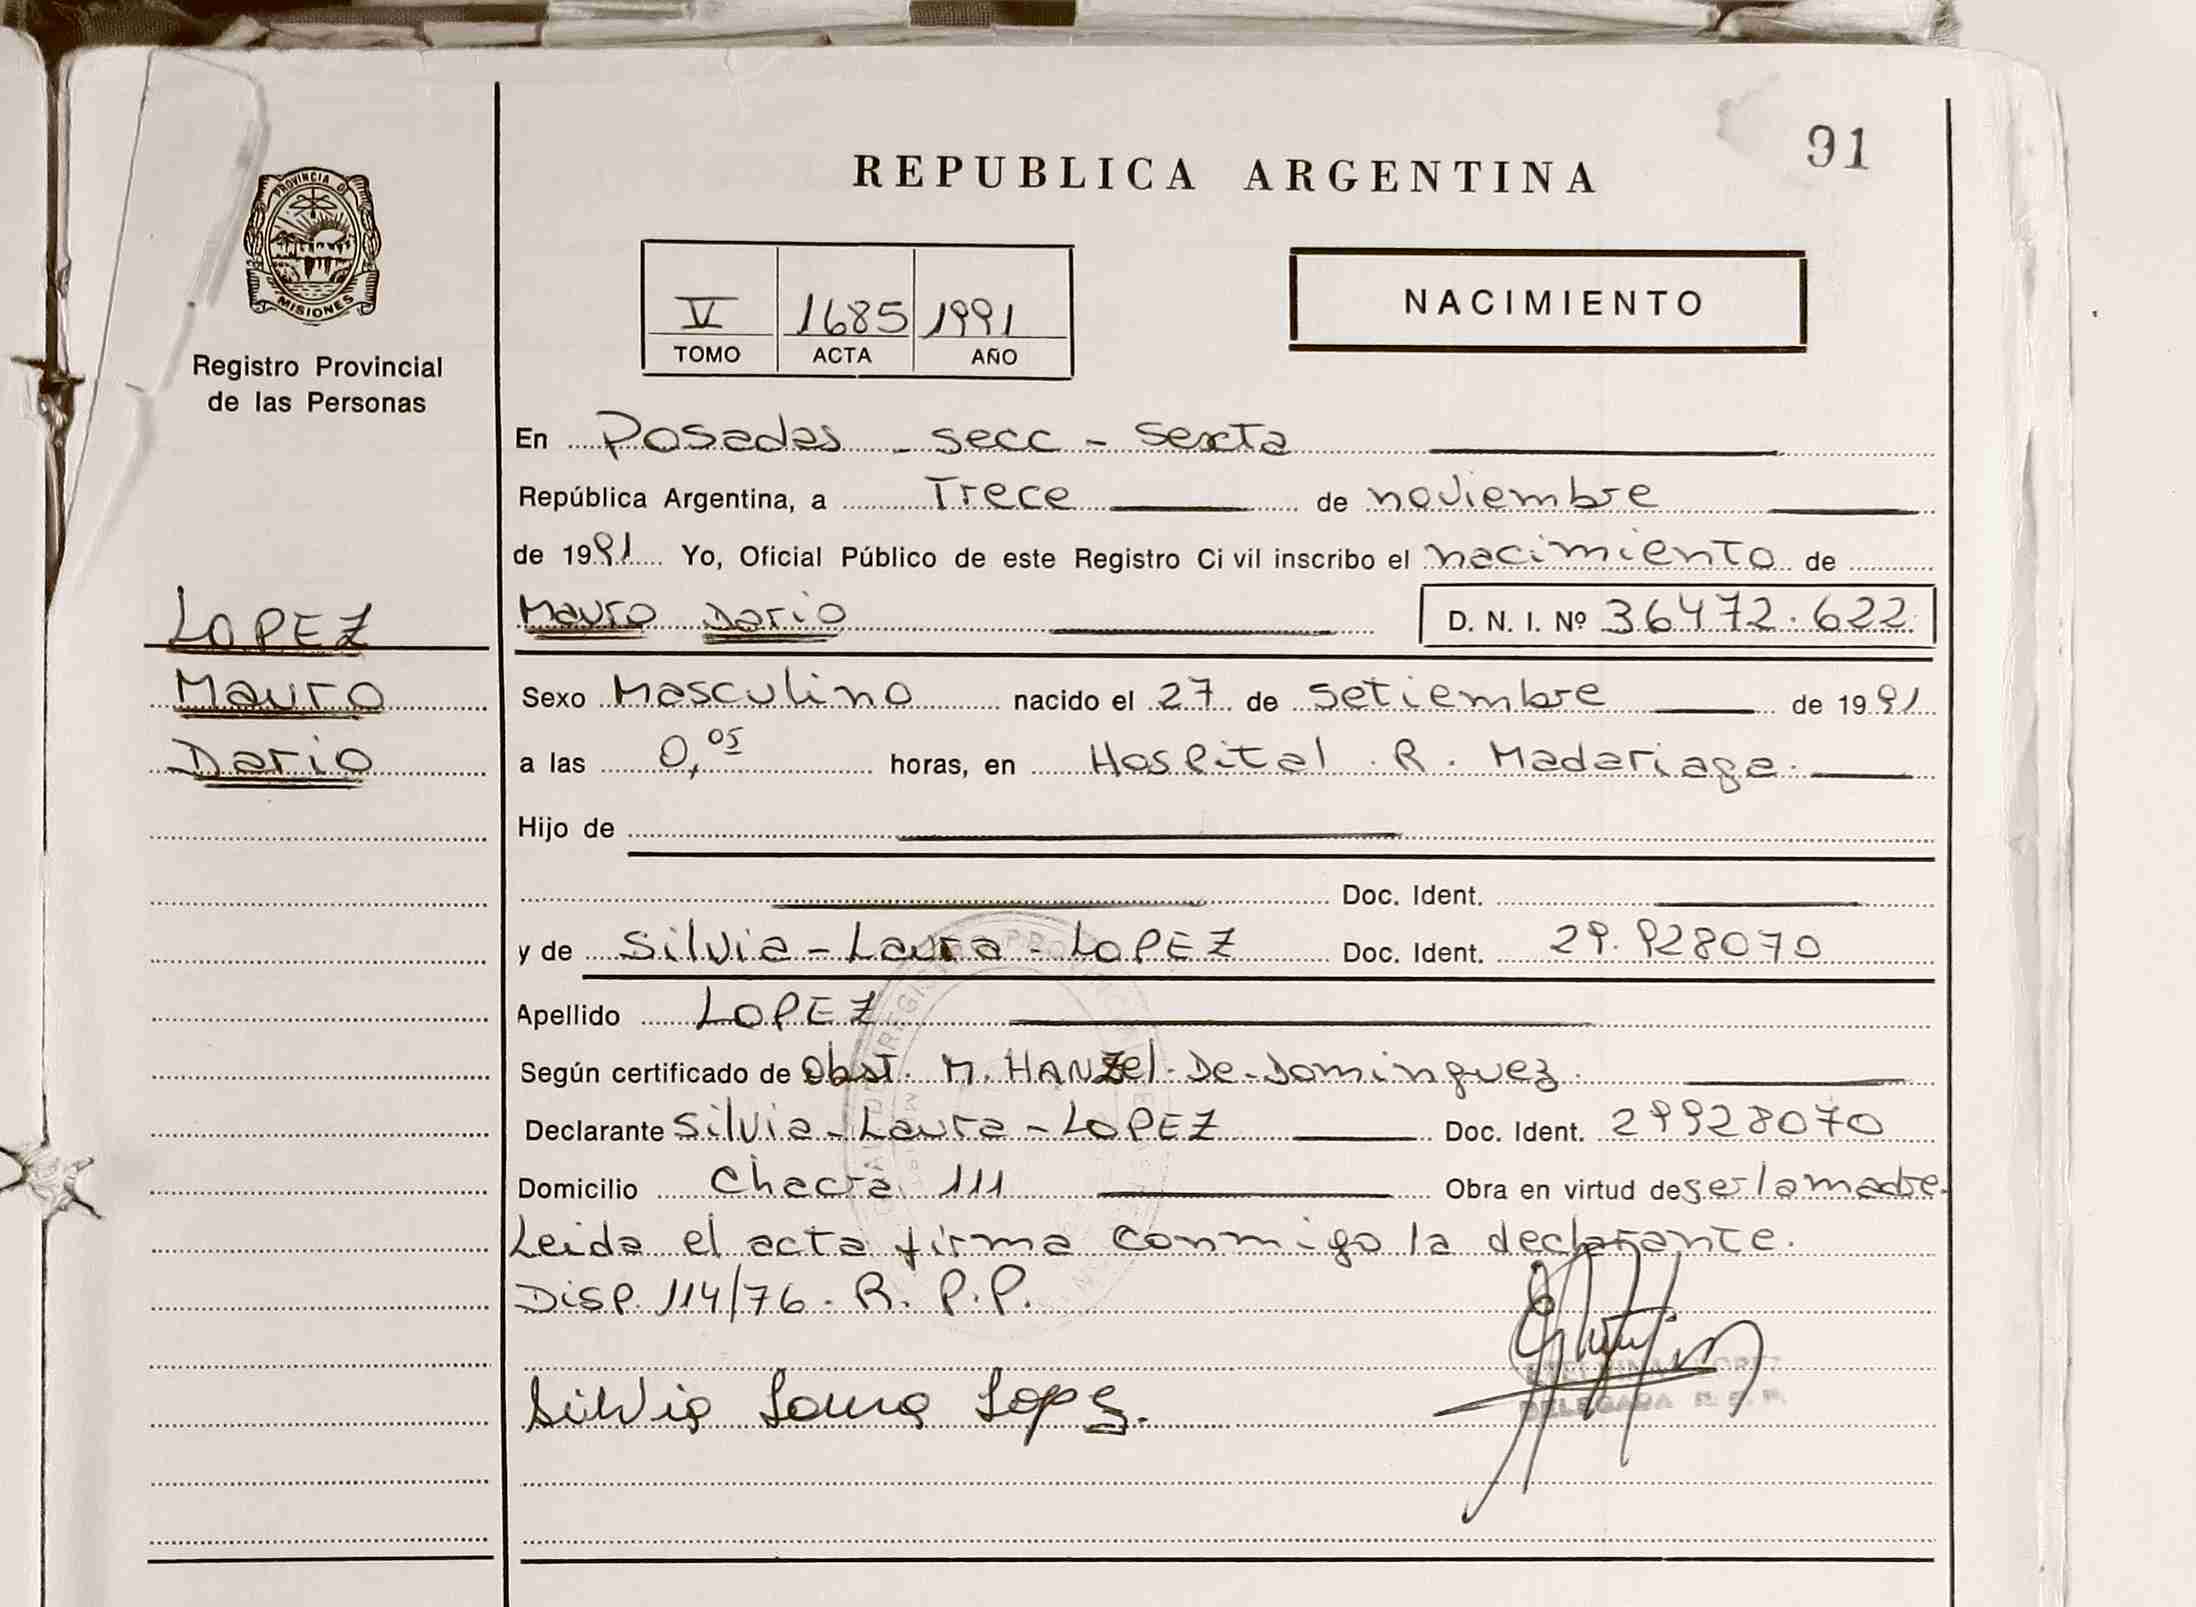 91
REPUBLICA ARGENTINA
PROVINCIA D
MISIONES
Registro Provincial
de las Personas
V 1685 1991
TOMO ACTA AÑO
NACIMIENTO
En Posadas - secc - sexta
República Argentina, a Trece de noviembre
de 1991 Yo, Oficial Público de este Registro Ci vil inscribo el nacimiento de
Mauro Dario D. N. I. Nº 36472.622
LOPEZ
Mauro
Dario
Sexo Masculino nacido el 27 de setiembre de 1991
a las 0,05 horas, en Hospital . R. Madariaga.
Hijo de
Doc. Ident.
y de Silvia - Laura - LOPEZ Doc. Ident. 29.928070
Apellido LOPEZ
Según certificado de Obst. M. HANZel - De - Dominguez.
Declarante Silvia - Laura - LOPEZ Doc. Ident. 29928070
Domicilio Chacra 111 Obra en virtud de ser la madre.
Leida el acta firma conmigo la declarante.
Disp. 114/76. R. P. P.
Silvia Laura Lopez.
DELEGADA R. P. P.